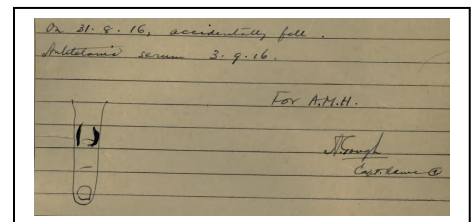 On 31.8.16, accidentally fell.
Antitetanic serum 3.9.16.
For A.M.H.
Gough
Capt.